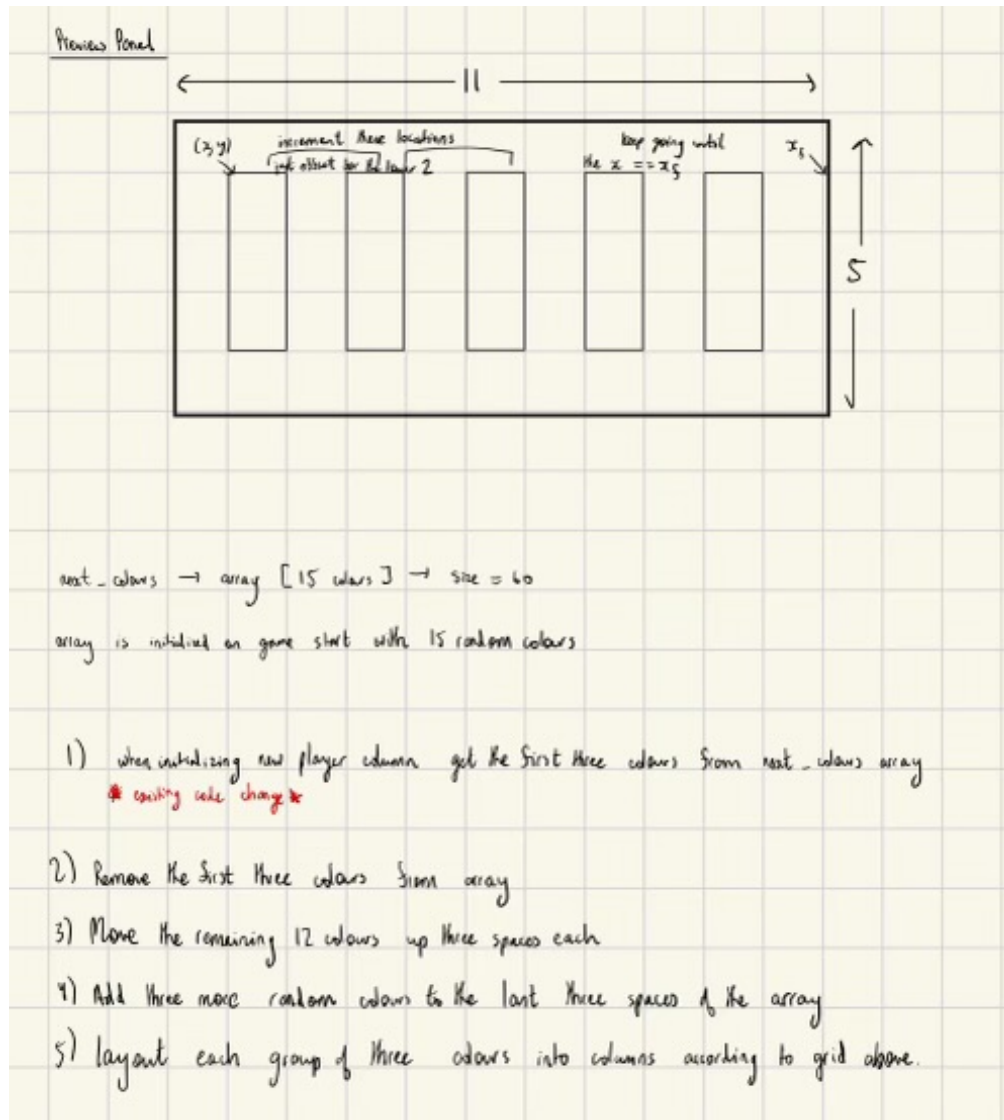 Preview Panel
11
(x, y) increment these locations keep going until xf
just offset for the lower 2 the x == xf
5
next_colours → array [15 colours] → size = 60
array is initialized on game start with 15 random colours
1) when initializing new player column get the first three colours from next_colours array
* existing code change *
2) Remove the first three colours from array
3) Move the remaining 12 colours up three spaces each
4) Add three more random colours to the last three spaces of the array
5) layout each group of three colours into columns according to grid above.